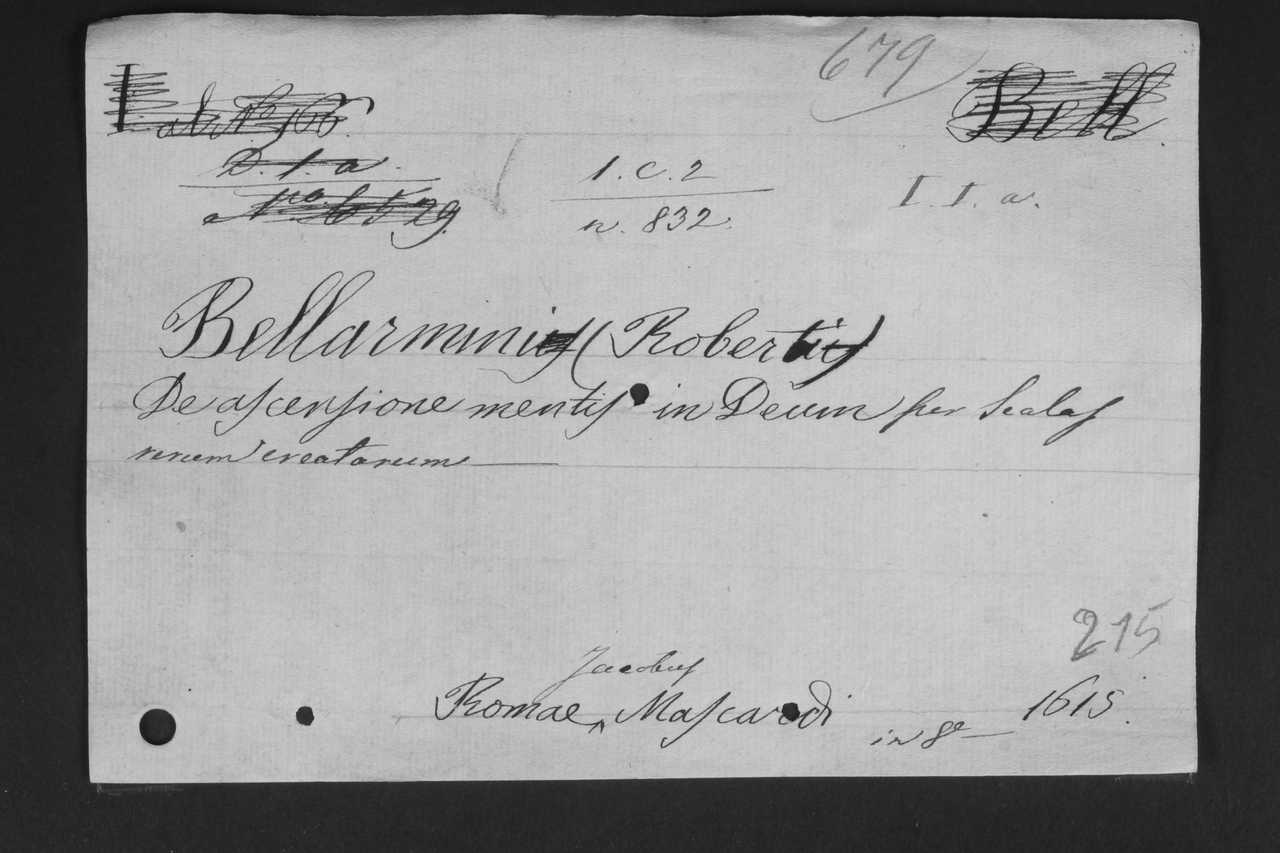 679
Bell.
D. I. a.
I. C. 2
n. 832.
I. I. a.
Bellarminius (Robertus)
De ascensione mentis in Deum per Scalas
rerum creatarum
215
Jacobus
Romae, Mascardi in 8º 1615.